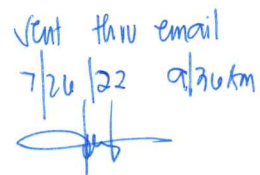 sent thru email
7/26/22 9:36am